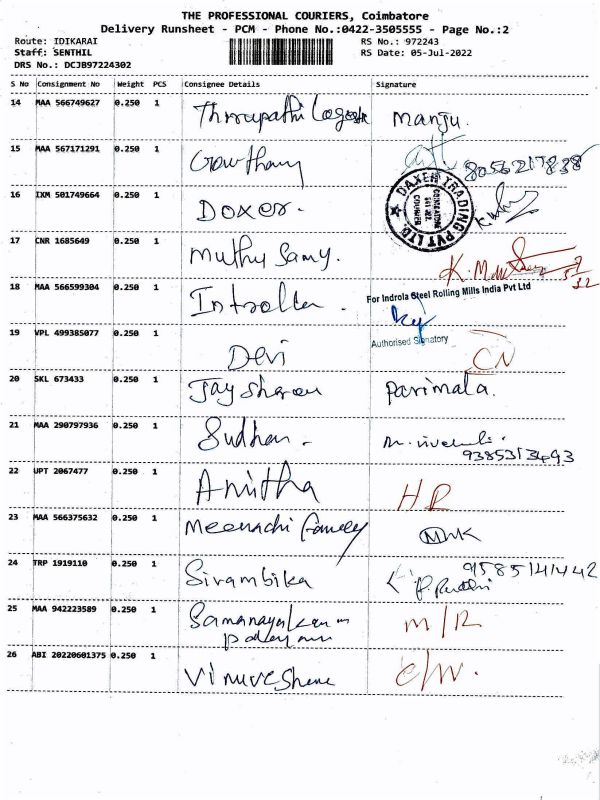 THE PROFESSIONAL COURIERS, Coimbatore
Delivery Runsheet - PCM - Phone No.:0422-3505555 - Page No.:2
Route: IDIKARAI RS No.: 972243
Staff: SENTHIL RS Date: 05-Jul-2022
DRS No.: DCJB97224302
S No Consignment No Weight PCS Consignee Details Signature
14 MAA 566749627 0.250 1 Thirupathi manju.
15 MAA 567171291 0.250 1 Gowtham 8056217838
16 IXM 501749664 0.250 1 Doxer.
DAXER TRADING PVT LTD.
17 CNR 1685649 0.250 1 Muthu Samy.
18 MAA 566599304 0.250 1
For Indrola Steel Rolling Mills India Pvt Ltd
Authorised Signatory
19 VPL 499385077 0.250 1 Devi CN
20 SKL 673433 0.250 1 Jay sharan Parimala.
21 MAA 290797936 0.250 1 Sudhan -
9385313493
22 UPT 2067477 0.250 1 Anitha HR
23 MAA 566375632 0.250 1 Meenachi
24 TRP 1919110 0.250 1 Sivambika 91585141442
25 MAA 942223589 0.250 1 M/R
26 ABI 20220601375 0.250 1 C/W.